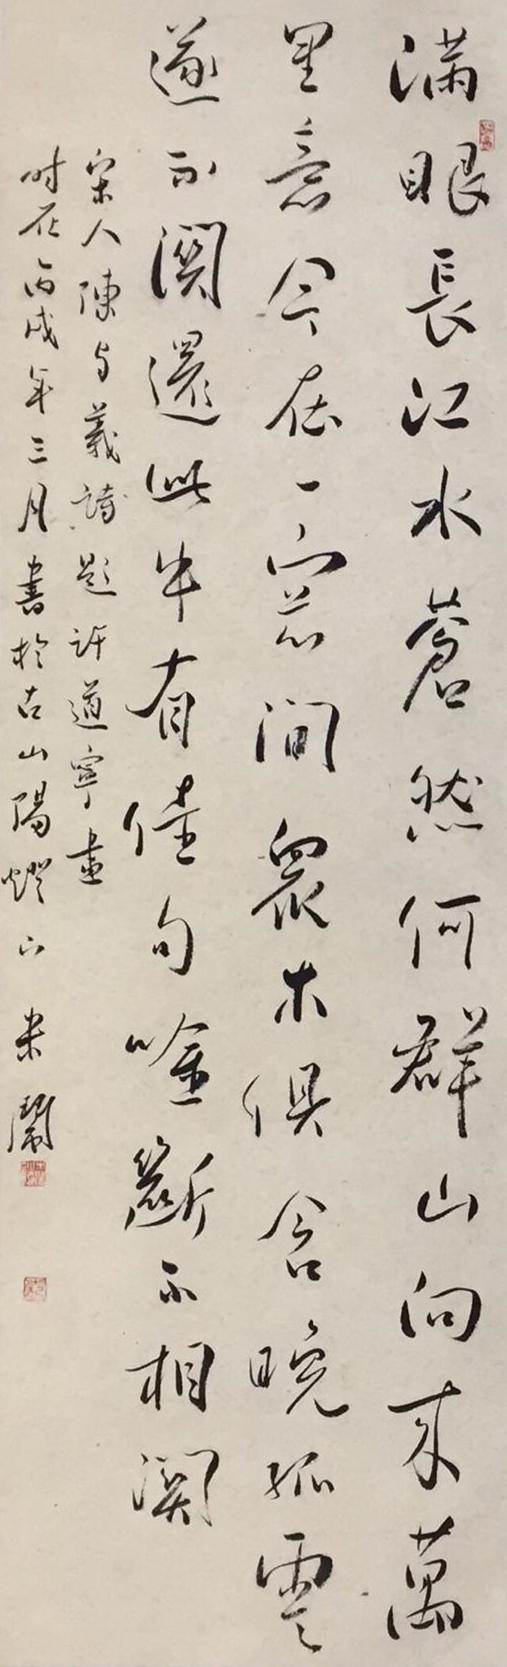 滿眼長江水蒼然何群山向来萬
里意今在一窓間眾木俱含晚孤雲
遂不關還此中有佳句唫斷不相關
宋人陳与義詩題許道寧畫
时在丙戌年三月書於古山陽燈下 米鬧